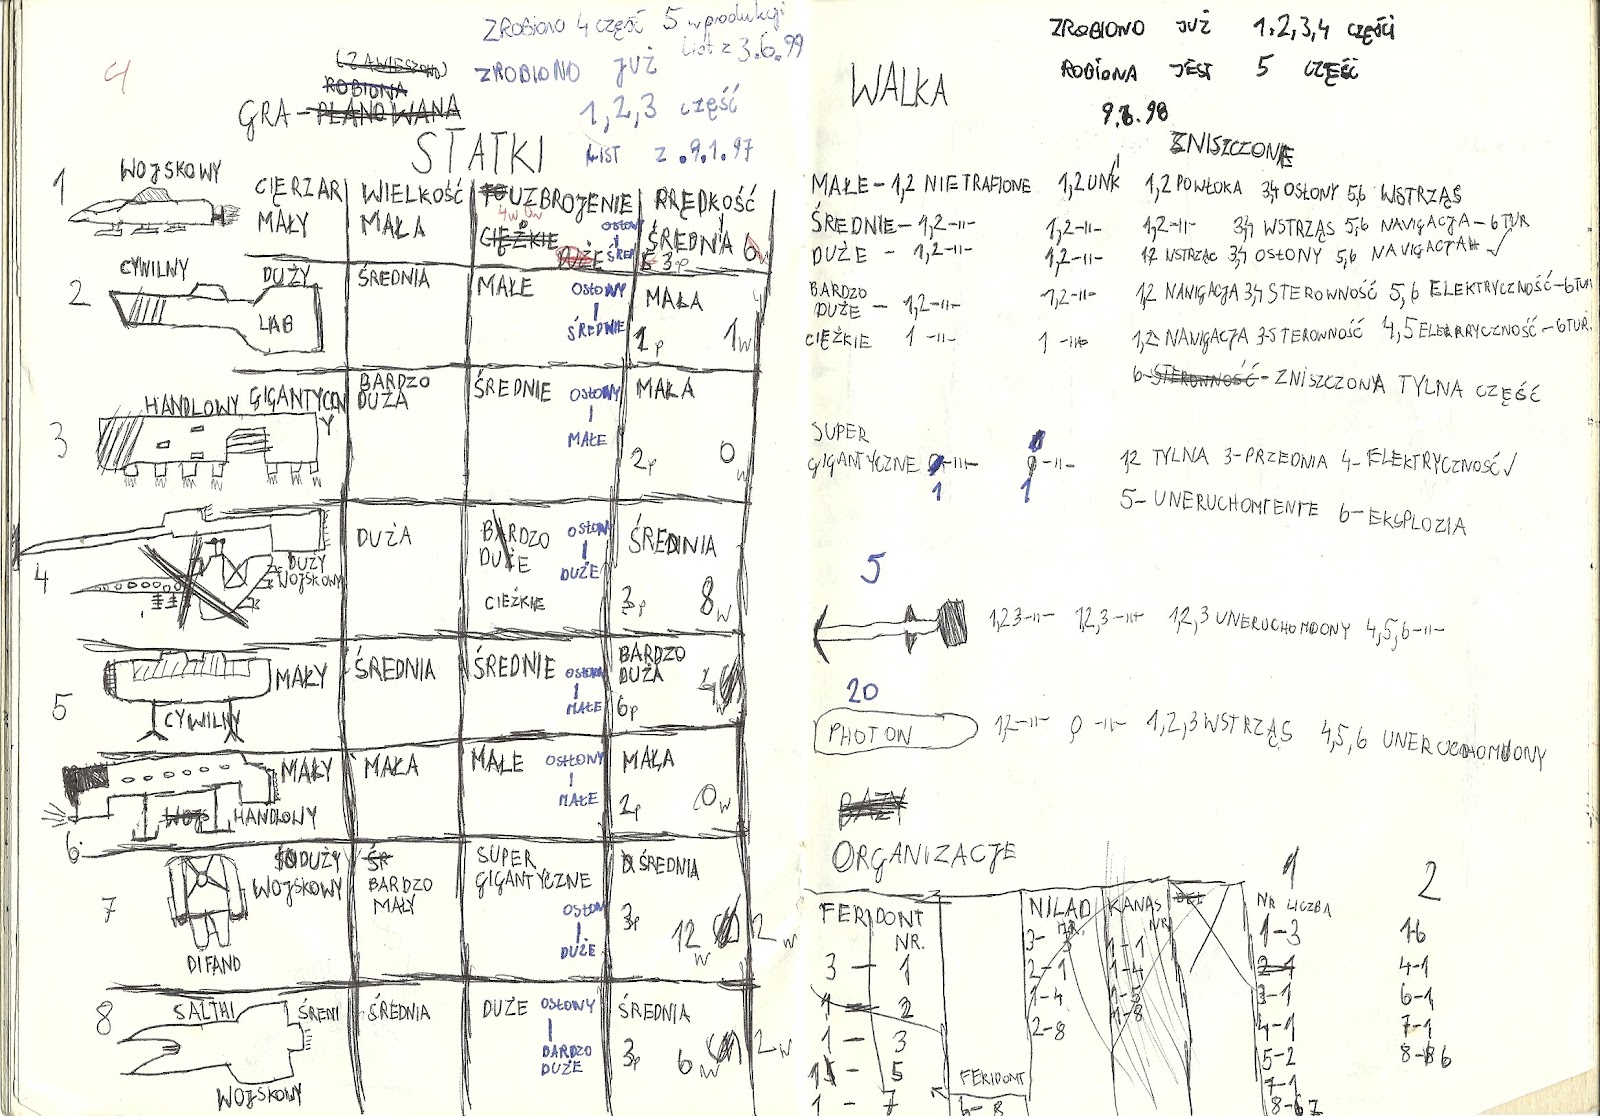 ZROBIONO 4 CZĘŚĆ 5 w produkcji
LIST z 3.6.99
4
(ZAWIESZONO)
ROBIONA
GRA - PLANOWANA
ZROBIONO JUŻ
1,2,3 CZĘŚĆ
LIST z .9.1.97
STATKI
CIĘRZAR WIELKOŚĆ UZBROJENIE PRĘDKOŚĆ
1 WOJSKOWY
MAŁY MAŁA 4w 6w
CIĘŻKIE DUŻE OSŁONY ŚREDNIA 6w
3p
2 CYWILNY
LAB
DUŻY ŚREDNIA MAŁE OSŁONY MAŁA
ŚREDNIE 1p 1w
3 HANDLOWY GIGANTYCZNY
BARDZO DUŻA ŚREDNIE OSŁONY MAŁA
MAŁE 2p 0w
4 DUŻY WOJSKOWY
DUŻA BARDZO DUŻE OSŁONY ŚREDINIA
DUŻE
CIEŻKIE 3p 8w
5 MAŁY ŚREDNIA ŚREDNIE OSŁONY BARDZO DUŻA
CYWILNY MAŁE 6p
6 MAŁY MAŁA MAŁE OSŁONY MAŁA
WOJS HANDLOWY MAŁE 2p 0w
7 DUŻY WOJSKOWY ŚR BARDZO MAŁY SUPER GIGANTYCZNE ŚREDNIA
OSŁONY 3p
DUŻE 12w 2w
DIFAND
8 SALTHI ŚRENI ŚREDNIA DUŻE OSŁONY ŚREDNIA
BARDZO DUŻE 3p 6w 2w
WOJSKOWY
ZROBIONO JUŻ 1,2,3,4 CZĘŚCI
ROBIONA JEST 5 CZĘŚĆ
WALKA
9.8.98
ZNISZCZONE
MAŁE - 1,2 NIETRAFIONE 1,2 UNK 1,2 POWŁOKA 3,4 OSŁONY 5,6 WSTRZĄS
ŚREDNIE - 1,2 -II- 1,2 -II- 1,2 -II- 3,4 WSTRZĄS 5,6 NAVIGACJA - 6 TUR
DUŻE - 1,2 -II- 1,2 -II- 12 WSTRZĄS 3,4 OSŁONY 5,6 NAVIGACJA
BARDZO
DUŻE - 1,2 -II- 1,2 -II- 12 NAVIGACJA 3,4 STEROWNOŚĆ 5,6 ELEKTRYCZNOŚĆ - 6 TUR
CIĘŻKIE 1 -II- 1 -II- 1,2- NAVIGACJA 3-STEROWNOŚĆ 4,5 ELEKRYCZNOŚĆ - 6 TUR.
6-STEROWNOŚĆ - ZNISZCZONA TYLNA CZĘŚĆ
SUPER
GIGANTYCZNE 0 -II- 0 -II- 12 TYLNA 3-PRZEDNIA 4- ELEKTRYCZNOŚĆ
1 1 5- UNERUCHOMIENIE 6- EKSPLOZIA
5
1,2 3 -II- 1 2, 3 -II- 1,2,3 UNERUCHOMIONY 4,5,6 -II-
20
PHOTON 1,2 -II- 0 -II- 1,2,3 WSTRZĄS 4,5,6 UNERUCHOMIONY
BAZY
ORGANIZACJE
1 2
FERIDONT NR. NILAD NR. KANAS NR. NR LICZBA
3 - 1 3- 3 1-1 1-3 1-6
1 - 2 2-1 1-4 2-1 4-1
1 - 3 1-4 1-5 3-1 6-1
1 - 5 2-8 1-8 4-1 7-1
1 - 7 5-2 8-6
7-1
8-67
FERIDONT
6-8